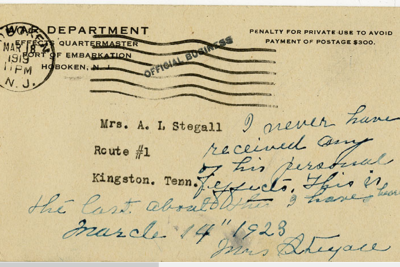 WAR DEPARTMENT
EFFECTS QUARTERMASTER
PORT OF EMBARKATION
HOBOKEN, N. J.
PENALTY FOR PRIVATE USE TO AVOID
PAYMENT OF POSTAGE $300.
HOBOKEN
MAR 18
1919
11 PM
N. J.
OFFICIAL BUSINESS
Mrs. A. L Stegall
Route #1
Kingston. Tenn.
I never have
received any
of his personal
effects. This is
the last about I have
March 14" 1923
Mrs Stegall